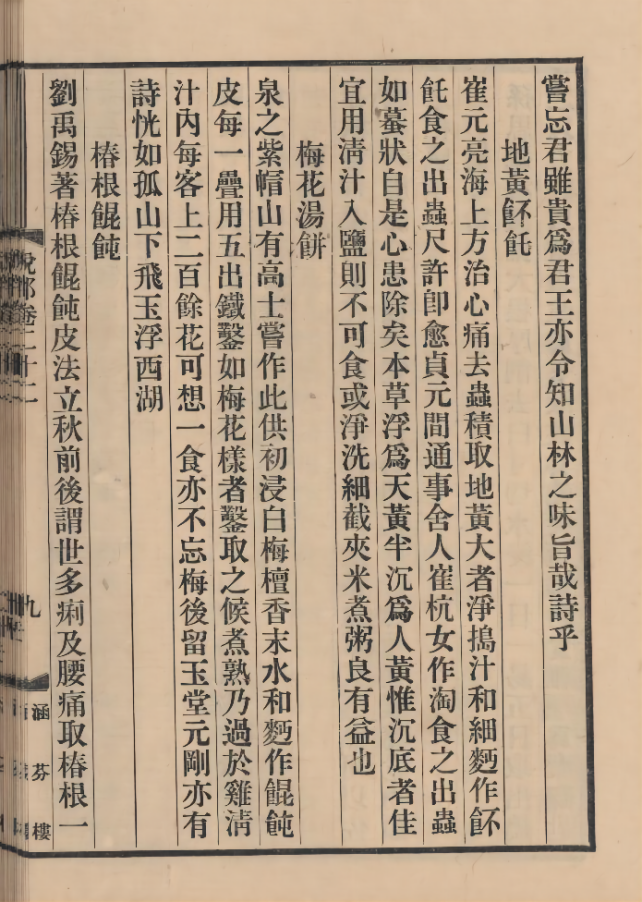 嘗忘君雖貴爲君王亦令知山林之味旨哉詩乎
地黃飪飥
崔元亮海上方治心痛去蟲積取地黃大者淨搗汁和細麪作飪
飥食之出蟲尺許卽愈貞元間通事舍人崔杭女作淘食之出蟲
如蟇狀自是心患除矣本草浮爲天黃半沉爲人黃惟沉底者佳
宜用淸汁入鹽則不可食或淨洗細截夾米煮粥良有益也
梅花湯餅
泉之紫帽山有高士嘗作此供初浸白梅檀香末水和麪作餛飩
皮每一疊用五出鐵鑿如梅花樣者鑿取之候煮熟乃過於雞淸
汁內每客上二百餘花可想一食亦不忘梅後留玉堂元剛亦有
詩恍如孤山下飛玉浮西湖
椿根餛飩
劉禹錫著椿根餛飩皮法立秋前後謂世多痢及腰痛取椿根一
說郛卷二十二
九
涵芬樓